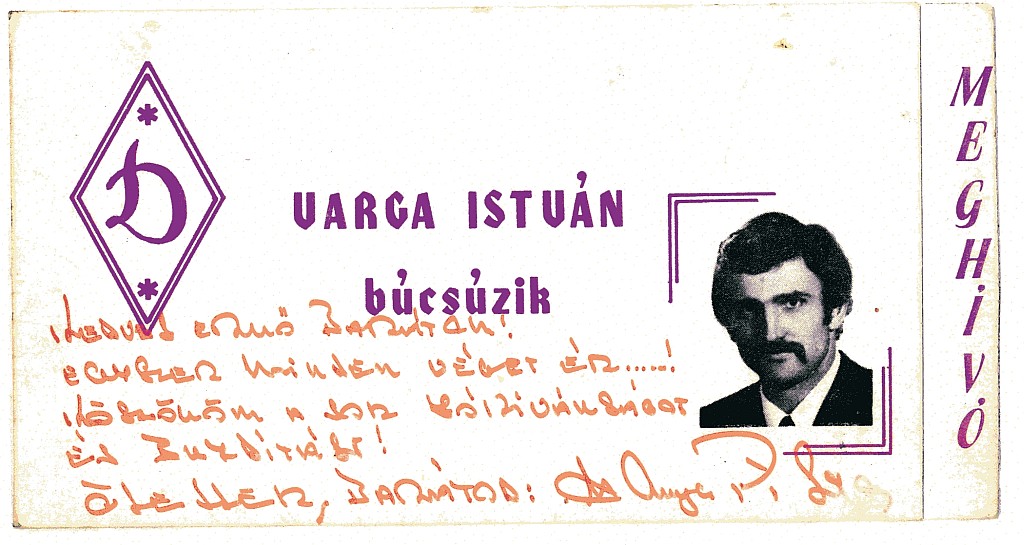 D
VARGA ISTVÁN
búcsúzik
KEDVES ERNŐ BARÁTOM!
EGYSZER MINDEN VÉGET ÉR.....!
KÖSZÖNÖM A SOK JÓKÍVÁNSÁGOT
ÉS BUZDÍTÁST!
ÖLELLEK, BARÁTOD:
MEGHÍVÓ